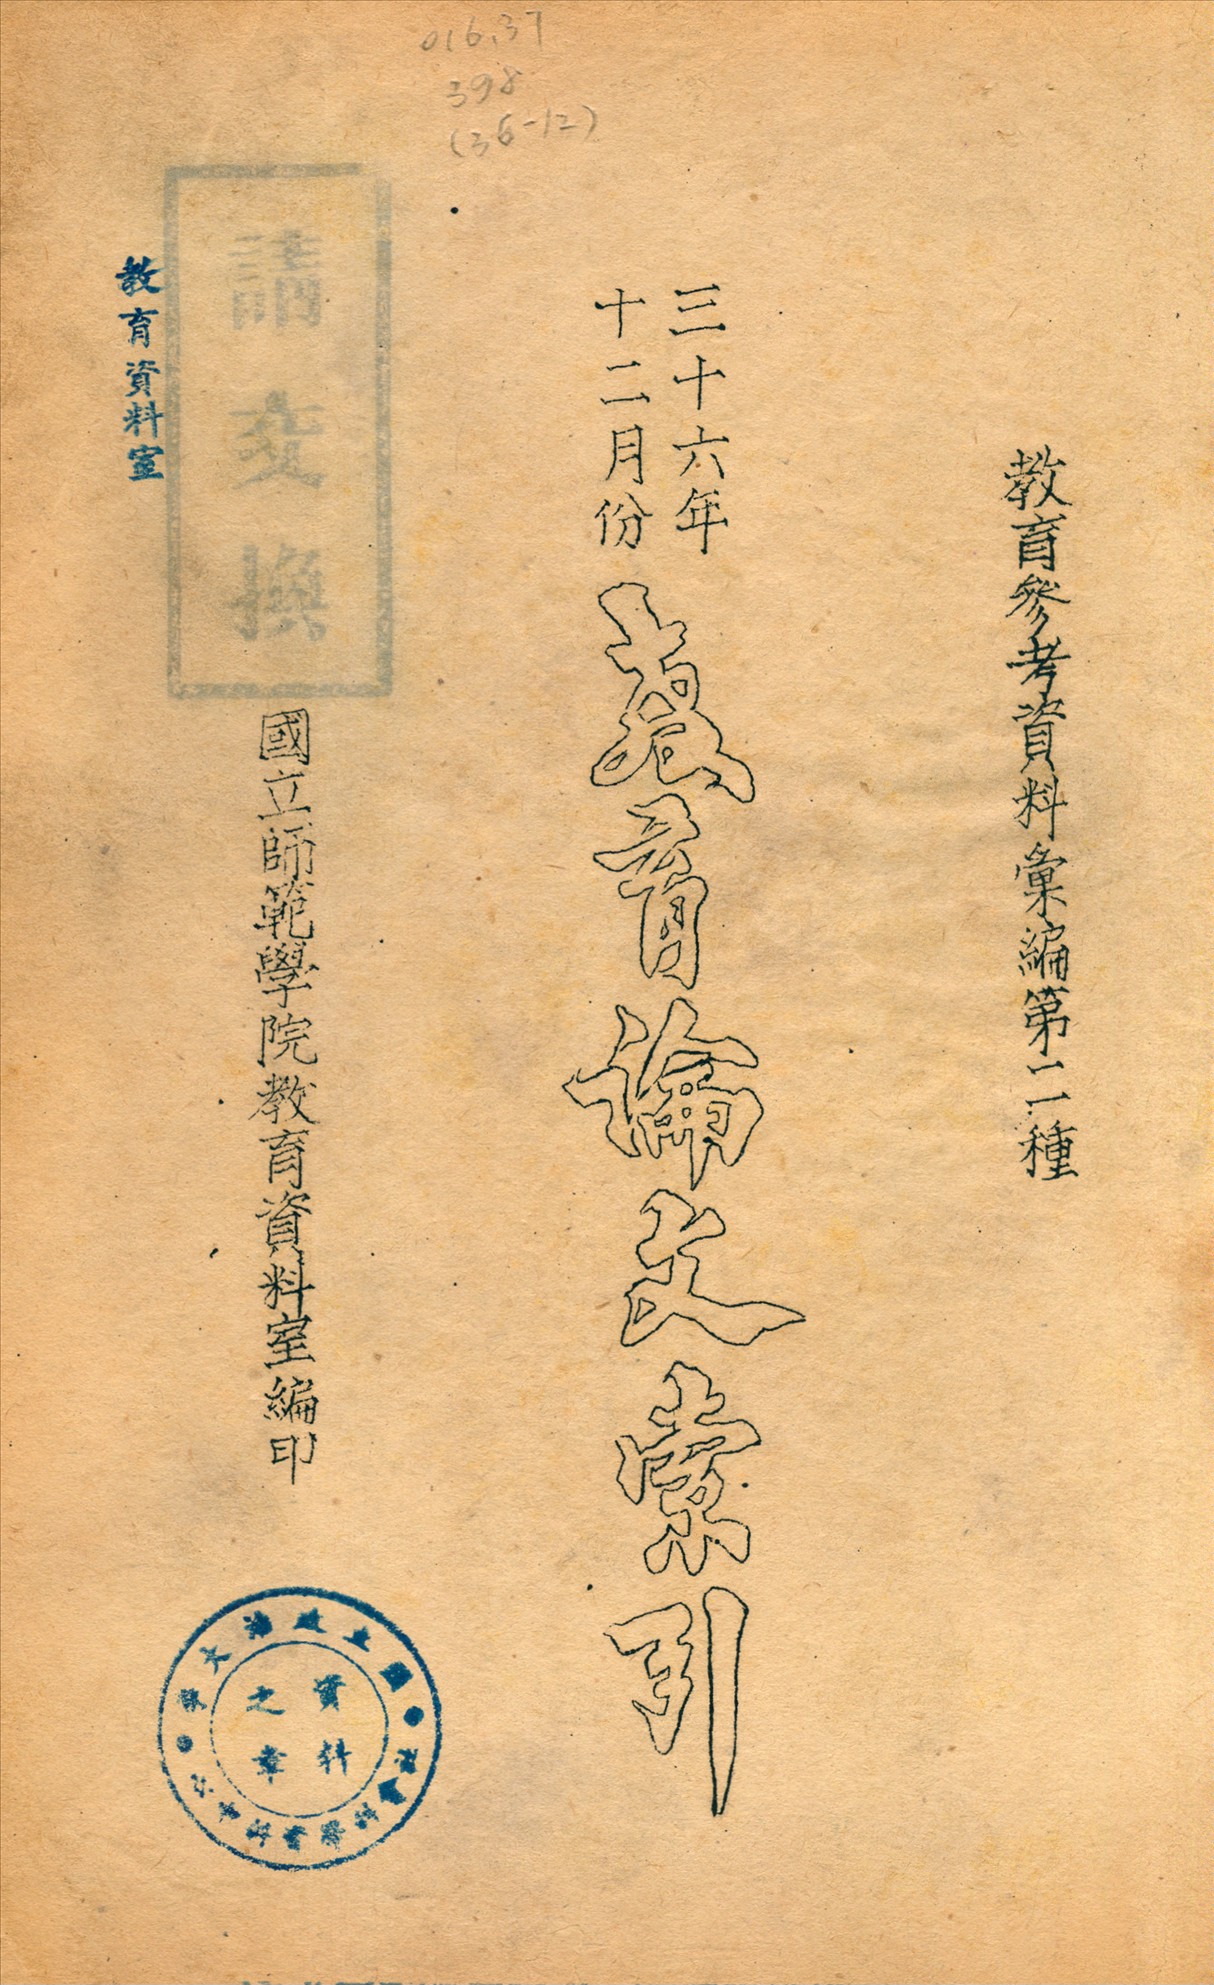 016.37
398
(36-12)
教育參考資料彙編第二種
三十六年
十二月份
教育論文索引
請交換
國立師範學院教育資料室編印
教育資料室
國立政治大學
資料
之章